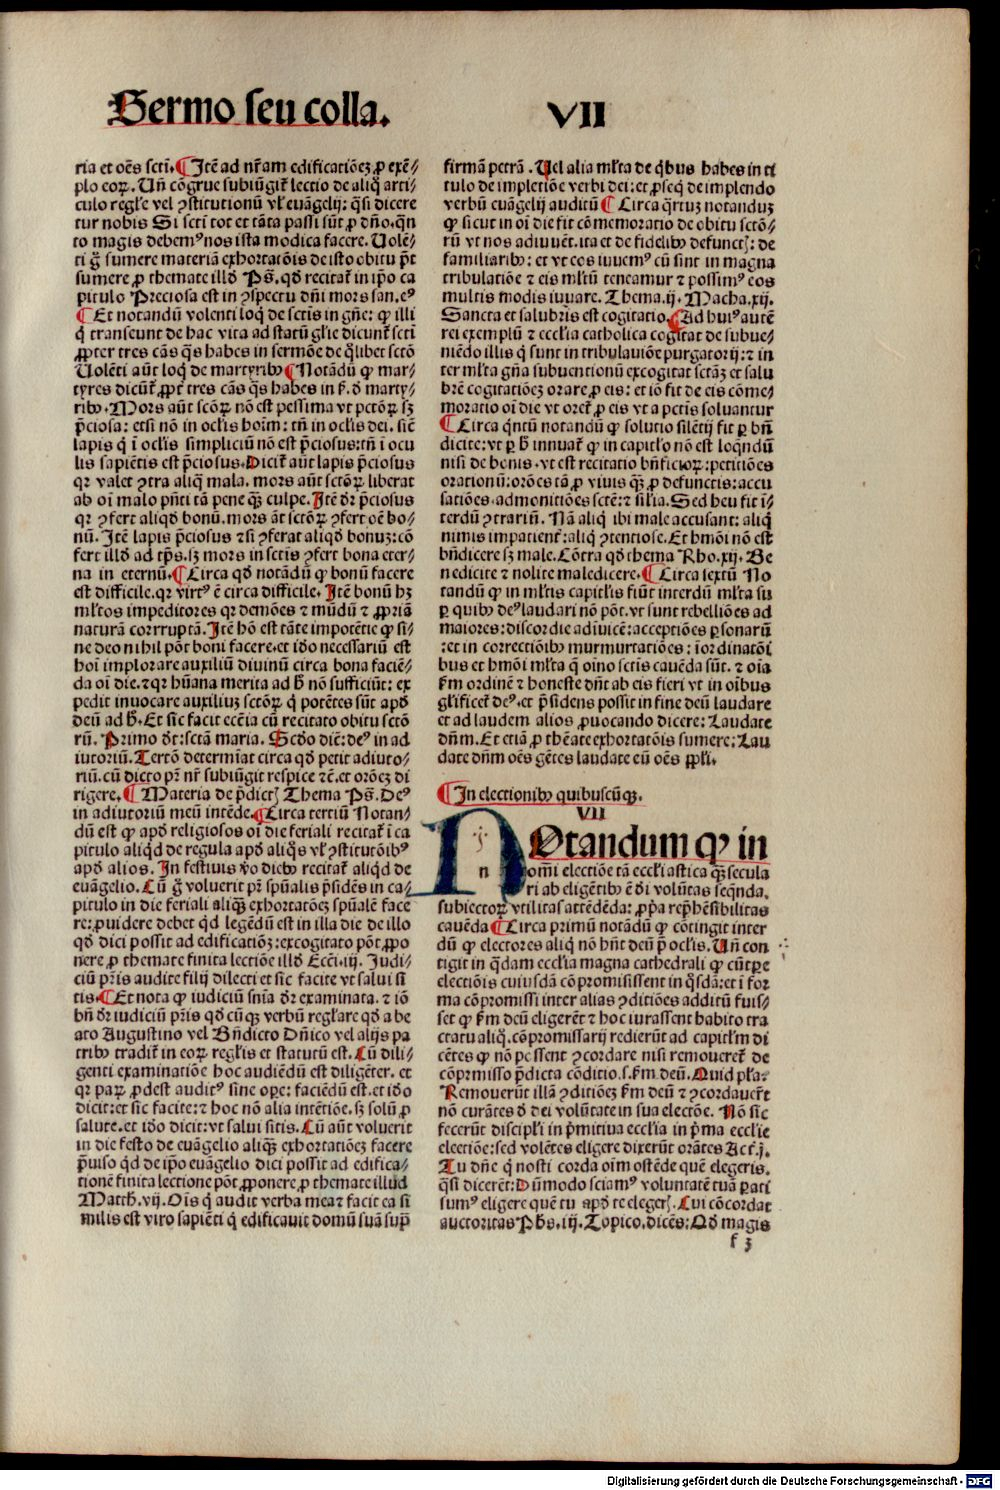 Sermo seu colla.
VII
ria et oẽs scti̅. ¶ Itẽ ad nr̃am edificatiõeʒ ꝓ exẽ⸗
plo eoꝝ. Uñ cõgrue subiũgit̃ lectio de aliq̃ arti⸗
culo regl̃e vel ꝯstitutionũ vl̃ euãgelij: q̃si dicere
tur nobis Si scti̅ tot et tãta passi sũt ꝓ dño. q̃n
to magis debemꝰ nos ista modica facere. Uolẽ⸗
ti g̃ sumere materiã exhortatõis de isto obitu p̃t
sumere ꝓ themate illđ Ps̃. qđ recitat̃ in ip̃o ca
pitulo Preciosa est in ꝯspectu dñi mors san. eꝰ
¶ Et notandũ volenti loq̃ de sctis in gñe: ꝙ illi
q̃ transeunt de hac vita ad statũ gl̃ie dicunt̃ scti̅
ꝓpter tres cãs q̃s habes in sermõe de q̃libet sctõ
Uolẽti aũt loq̃ de martyribꝰ ¶ Notãdũ ꝙ mar⸗
tyres dicũt̃ ꝓpt̃ tres cãs q̃s habes in f̃. đ marty⸗
ribꝰ. Mors aũt scõꝝ nõ est pessima vt pctõꝝ sʒ
p̃ciosa: etsi nõ in ocl̃is hoĩm: tñ in ocl̃is dei. siẽ
lapis q̃ ĩ ocl̃is simpliciũ nõ est p̃ciosus: tñ ĩ ocu
lis sapiẽtis est p̃ciosus. Dicit̃ aũt lapis p̃ciosus
qꝛ valet ꝯtra aliq̃ mala. mors aũt sctõꝝ liberat
ab oĩ malo pñti tã pene qʒ̃ culpe. Itẽ đꝛ p̃ciosus
qꝛ ꝯfert aliqđ bonũ. mors ãt sctõꝝ ꝯfert oẽ bo⸗
nũ. Itẽ lapis p̃ciosus ⁊ si ꝯferat aliqđ bonuʒ: cõ
fert illđ ad tp̃s. sʒ mors in sctis ꝯfert bona eter⸗
na in eternũ. ¶ Circa qđ notãdũ ꝙ bonũ facere
est difficile. qꝛ virtꝰ ẽ circa difficile. Itẽ bonũ hʒ
ml̃tos impeditores qꝛ demões ⁊ mũdũ ⁊ ꝓpriã
naturã corruptã. Itẽ hõ est tãte impotẽtie ꝙ si⸗
ne deo nihil põt boni facere. et iđo necessariũ est
hoĩ implorare auxiliũ diuinũ circa bona faciẽ⸗
da oĩ die. ⁊ qꝛ hũana merita ad ħ nõ sufficiũt: ex
pedit inuocare auxiliuʒ sctõꝝ q̃ potẽtes sũt apđ
deũ ad ħ. Et sic facit ecẽia cũ recitato obitu sctõ
rũ. Primo đt: sctã maria. Scđo diẽ: deꝰ in ad
iutoriũ. Tertõ determĩat circa qđ petit adiuto⸗
riũ. cũ dicto pr̃ nr̃ subiũgit respice ⁊c̃. et orõeʒ di
rigere. ¶ Materia de p̃dict̃ Thema Ps̃. Deꝰ
in adiutoriũ meũ intẽde. ¶ Circa tertiũ Notan⸗
dũ est ꝙ apđ religiosos oĩ die feriali recitat̃ ĩ ca
pitulo aliqđ de regula apđ aliq̃s vl̃ ꝯstitutõibꝰ
apđ alios. In festiuis ṽo diebꝰ recitat̃ aliqđ de
euãgelio. Cũ g̃ voluerit pr̃ spũalis p̃sidẽs in ca⸗
pitulo in die feriali aliqʒ̃ exhortatõeʒ spũalẽ face
re: ꝓuidere debet qđ legẽdũ est in illa die de illo
qđ dici possit ad edificatiõʒ: excogitato põt ꝓpo
nere ꝓ themate finita lectiõe illđ Ecci̅. iij. Judi⸗
ciũ pr̃is audite filij dilecti et sic facite vt salui si
tis. ¶ Et nota ꝙ iudiciũ snĩa đꝛ examinata. ⁊ iõ
bñ đꝛ iudiciũ pr̃is qđ cũqʒ verbũ regl̃are qđ a be
ato Augustino vel Bñdicto Dñico vel alijs pa
tribꝰ tradit̃ in eoꝝ regl̃is et statutũ est. Cũ dili⸗
genti examinatiõe hoc audiẽdũ est diligẽter. et
qꝛ paꝝ ꝓdest auditꝰ sine oꝑe: faciẽdũ est. et iđo
dicit: et sic facite: ⁊ hoc nõ alia intẽtiõe. sʒ solũ ꝓ
salute. et iđo dicit: vt salui sitis. Cũ aũt voluerit
in die festo de euãgelio aliqʒ̃ exhortatiõeʒ facere
p̃uiso q̃d de ip̃o euãgelio dici possit ad edifica⸗
tionẽ finita lectione põt ꝓponere ꝓ themate illud
Matth. vij. Oĩs q̃ audit verba mea ⁊ facit ea si
milis est viro sapiẽti q̃ edificauit domũ suã sup̃
firmã petrã. Uel alia ml̃ta de q̃bus habes in ti
tulo de impletiõe verbi dei: et ꝓseq̃ de implendo
verbũ euãgelij auditũ ¶ Circa q̃rtuʒ notanduʒ
ꝙ sicut in oĩ die fit cõmemoratio de obitu sctõ⸗
rũ vt nos adiuuẽt. ita et de fidelibꝰ defunct̃: de
familiaribꝰ: et vt eos iuuemꝰ cũ sint in magna
tribulatiõe ⁊ eis ml̃tũ teneamur ⁊ possimꝰ eos
multis modis iuuare. Thema. ij. Macha. xij.
Sancta et salubr̃is est cogitatio. ¶ Ad huiꝰ autẽ
rei exemplũ ⁊ eccl̃ia catholica cogitat de subue⸗
niẽdo illis q̃ sunt in tribulatiõe purgatorij: ⁊ in
ter ml̃ta gña subuentionũ excogitat sctãʒ et salu
brẽ cogitatiõeʒ orare ꝓ eis: et iõ fit de eis cõme⸗
moratio oĩ die vt oret̃ ꝓ eis vt a pctis soluantur
¶ Circa q̃ntũ notandũ ꝙ solutio silẽtij fit ꝑ bñ
dicite: vt ꝑ ħ innuat̃ ꝙ in capitl̃o nõ est loq̃ndũ
nisi de bonis. vt est recitatio bñficioꝝ: petitiões
orationũ: orões tã ꝓ viuis qʒ̃ ꝓ defunctis: accu
satiões. admonitiões sctẽ: ⁊ sil̃ia. Sed heu fit ĩ⸗
terdũ ꝯtrariũ. Nã aliq̃ ibi male accusant: aliq̃
nimis impatient̃: aliq̃ ꝯtentiose. Et hmõi nõ est
bñdicere sʒ male. Cõtra qđ thema Rho. xij. Be
nedicite ⁊ nolite maledicere. ¶ Circa sextũ No
tandũ ꝙ in ml̃tis capitl̃is fiũt interdũ ml̃ta su
ꝑ quibꝰ deꝰ laudari nõ põt. vt sunt rebelliões ad
maiores: discordie adĩuicẽ: acceptiões ꝑsonarũ
: et in correctiõibꝰ murmurtatiões: ĩordinatõi
bus et hmõi ml̃ta q̃ oĩno sctis cauẽda sũt. ⁊ oĩa
fm̃ ordinẽ ⁊ honeste dñt ab eis fieri vt in oĩbus
gl̃ificet̃ deꝰ. et p̃sidens possit in fine deũ laudare
et ad laudem alios ꝓuocando dicere: Laudate
dñm. Et etiã ꝓ thẽate exhortatõis sumere: Lau
date dñm oẽs gẽtes laudate eũ oẽs ppl̃i.
¶ In electionibꝰ quibuscũqʒ.
VII
n
NOtandum ꝙ in
omĩ electiõe tã eccl̃iastica qʒ̃ secula
ri ab eligẽtibꝰ ẽ đi volũtas seq̃nda.
subiectoꝝ vtilitas attẽdẽda: ꝓp̃a rep̃hẽsibilitas
cauẽda ¶ Circa primũ notãdũ ꝙ cõtingit inter
dũ ꝙ electores aliq̃ nõ hñt deũ p̃ ocl̃is. Uñ con
tigit in q̃dam eccl̃ia magna cathedrali ꝙ cũ tp̃e
electiõis cuiusdã cõpromisissent in q̃sdã: et ĩ for
ma cõpromissi inter alias ꝯditiões additũ fuis⸗
set ꝙ fm̃ deũ eligerẽt ⁊ hoc iurassent habito tra
ctatu aliq̃. cõpromissarij redierũt ad capitl̃m di
cẽtes ꝙ nõ possent ꝯcordare nisi remoueret̃ de
cõpromisso p̃dicta cõditio. s. fm̃ deũ. Quid pl̃a.
Remouerũt illã ꝯditiõeʒ fm̃ deũ ⁊ ꝯcordauer̃t
nõ curãtes đ dei volũtate in sua electõe. Nõ sic
fecerũt discipl̃i in p̃mitiua eccl̃ia in p̃ma eccl̃ie
electiõe: sed volẽtes eligere dixerũt orãtes Act̃. j.
Tu dñe q̃ nosti corda oĩm ostẽde quẽ elegeris.
q̃si dicerẽt: Dũmodo sciamꝰ voluntatẽ tuã ꝑati
sumꝰ eligere quẽ tu apđ te eleger̃. Cui cõcordat
auctoritas Ph̃s. iij. Topico. dicẽs: Qđ magis
f 3
Digitalisierung gefördert durch die Deutsche Forschungsgemeinschaft - DFG